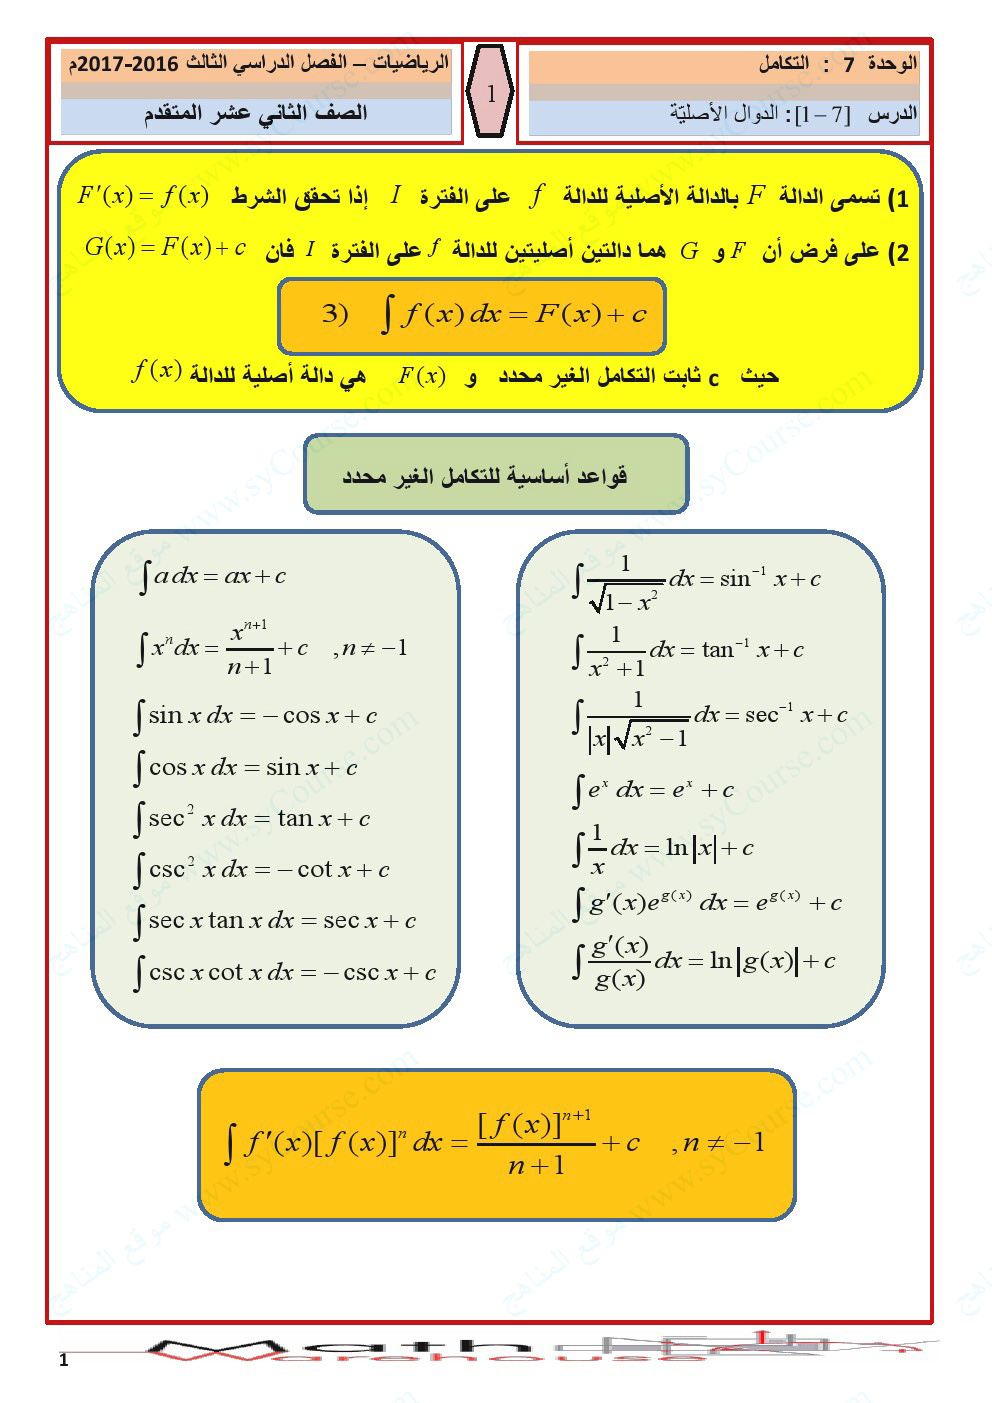 الوحدة 7 : التكامل
الدرس [7 – 1] : الدوال الأصليّة
1
الرياضيات – الفصل الدراسي الثالث 2016-2017م
الصف الثاني عشر المتقدم
1) تسمى الدالة F بالدالة الأصلية للدالة f على الفترة I إذا تحقق الشرط F′(x) = f(x)
2) على فرض أن F و G هما دالتين أصليتين للدالة f على الفترة I فان G(x) = F(x) + c
3) ∫ f(x) dx = F(x) + c
حيث c ثابت التكامل الغير محدد و F(x) هي دالة أصلية للدالة f(x)
قواعد أساسية للتكامل الغير محدد
∫ 1/√(1 − x²) dx = sin⁻¹ x + c
∫ 1/(x² + 1) dx = tan⁻¹ x + c
∫ 1/(|x|√(x² − 1)) dx = sec⁻¹ x + c
∫ eˣ dx = eˣ + c
∫ 1/x dx = ln|x| + c
∫ g′(x)e^{g(x)} dx = e^{g(x)} + c
∫ g′(x)/g(x) dx = ln|g(x)| + c
∫ a dx = ax + c
∫ xⁿ dx = xⁿ⁺¹/(n+1) + c , n ≠ −1
∫ sin x dx = − cos x + c
∫ cos x dx = sin x + c
∫ sec² x dx = tan x + c
∫ csc² x dx = − cot x + c
∫ sec x tan x dx = sec x + c
∫ csc x cot x dx = − csc x + c
∫ f′(x)[f(x)]ⁿ dx = [f(x)]ⁿ⁺¹/(n+1) + c , n ≠ −1
Math
Warehouse
1
موقع المناهج www.syCourse.com